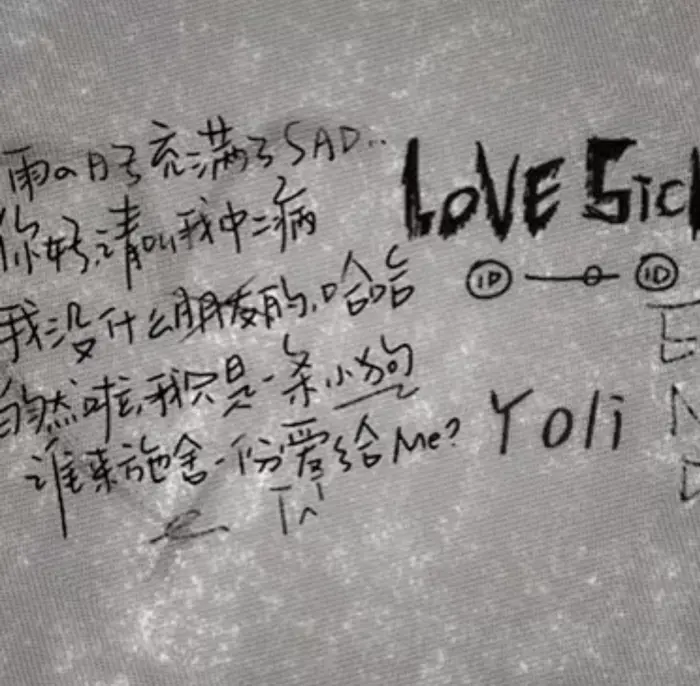 雨の月亏充满了SAD..
你好,请叫我中二病
我没什么朋友的,哈哈
的然啦,我只是一条小狗
谁来施舍一份爱给Me?
LOVE SICK
ID ID
Yoli
END